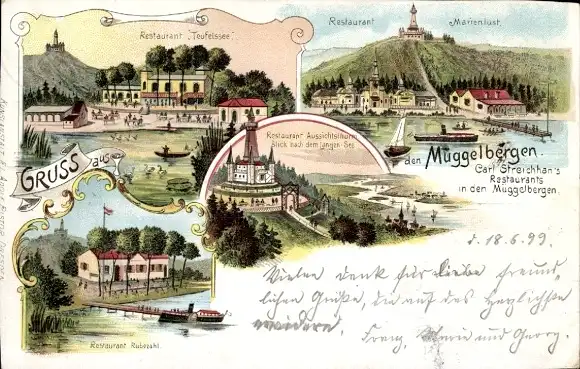 Restaurant „Teufelssee".
Restaurant Marienlust.
Restaurant Aussichtsthurm
Blick nach dem langen-See
GRUSS aus den Müggelbergen.
Carl Streichhan's
Restaurants
in den Müggelbergen.
Restaurant Rübezahl.
d. 18.6.99.
Vielen Dank für liebe freund-
lichen Grüße, die auf das Herzlichste
erwidern
Franz, Marie und Georg.